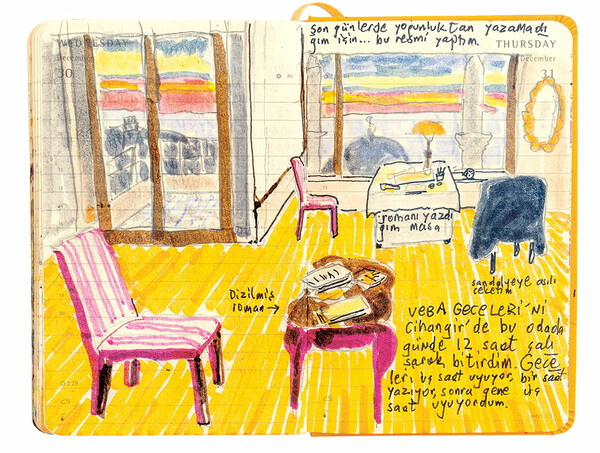 Son günlerde yoğunluktan yazamadı
ğım için... bu resmi yaptım.
WEDNESDAY
December
30
THURSDAY
December
31
romanı yazdı
ğım masa
sandalyeye asılı
ceketim
Dizilmiş
roman →
VEBA GECELERİ'Nİ
Cihangir'de bu odada
günde 12 saat çalı
şarak bitirdim. Gece
leri üç saat uyuyor, bir saat
yazıyor, sonra gene üç
saat uyuyordum.